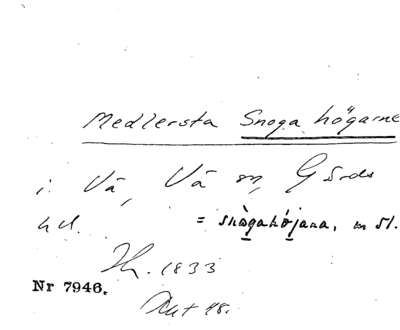 Medlersta Snoga högarne
i Vä, Vä sn, Gärds
hd. = snò̱gahö̱jana, m sl.
1833
Nr 7946.
Akt 48.